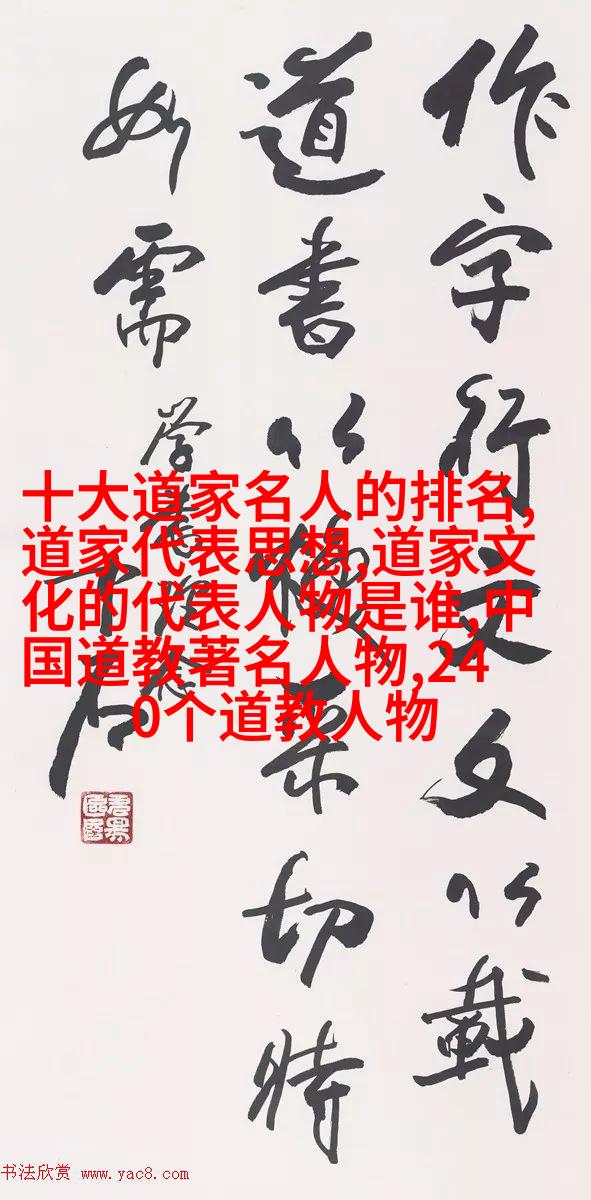 作字行文文以載
道書以采切時
如需
十大道家名人的排名,
道家代表思想,道家文
化的代表人物是谁,中
国道教著名人物,24
0个道教人物
书法欣赏 www.yac8.com